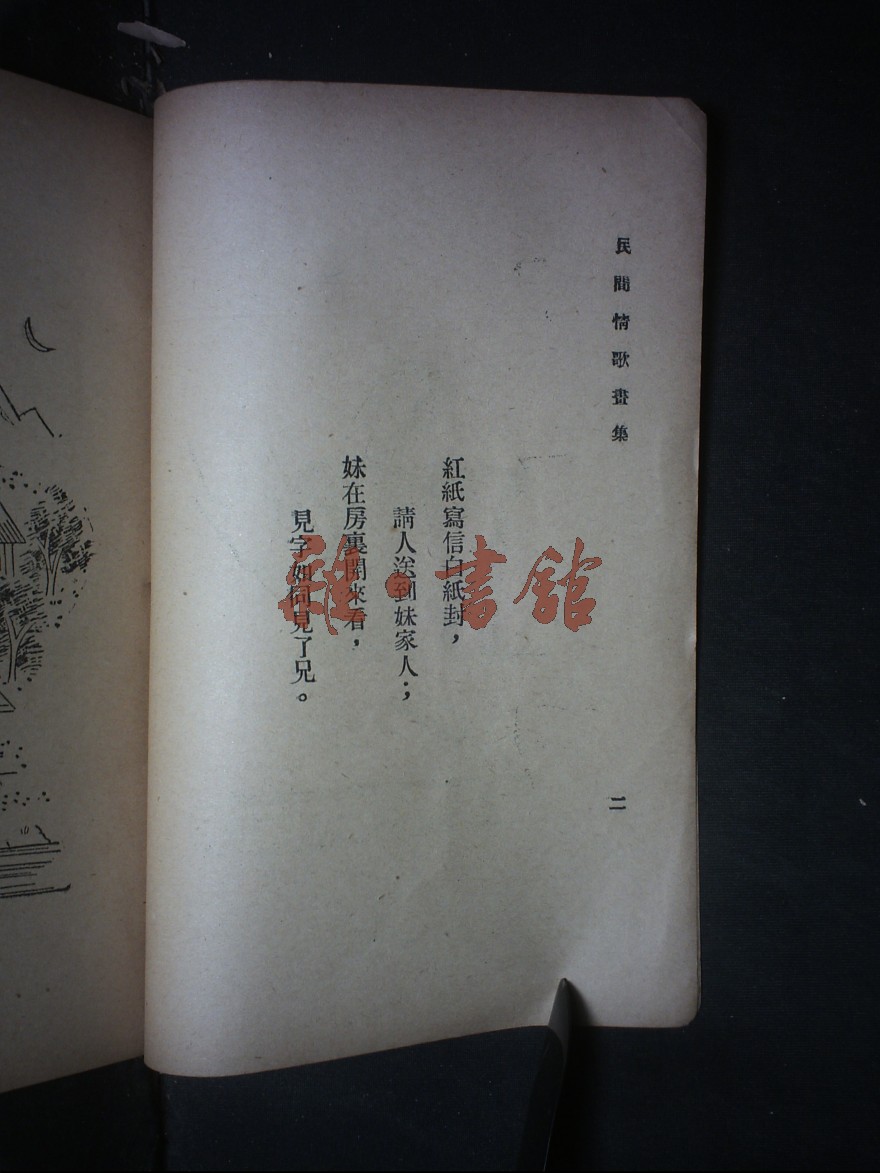 民間情歌畫集
紅紙寫信白紙封，
請人送到妹家人；
妹在房裏開來看，
見字如同見了兄。
二
雜·書館